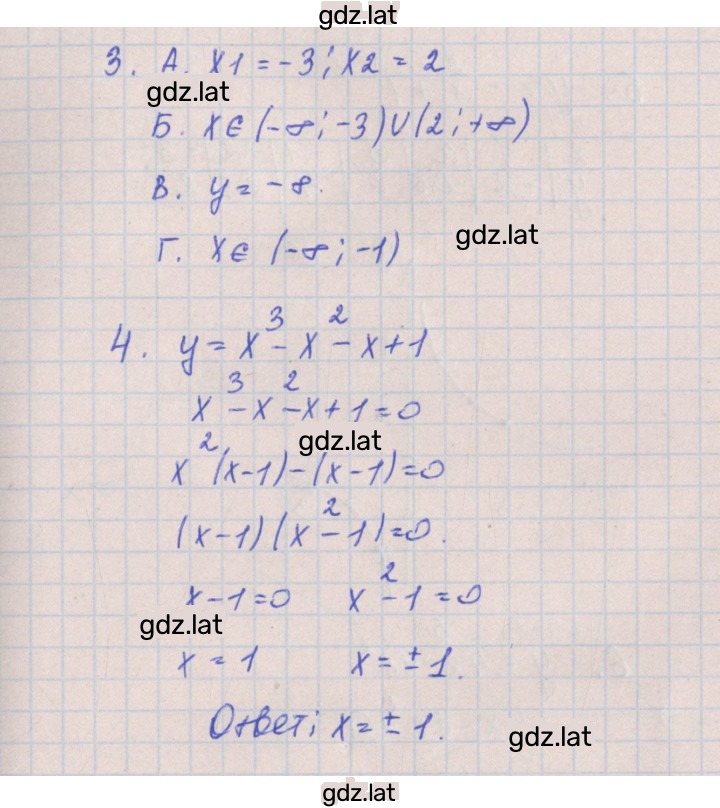 gdz.lat
3. А. x1 = -3; x2 = 2
gdz.lat
Б. x∈(-∞; -3)∪(2; +∞)
В. y = -8.
gdz.lat
Г. x∈ (-∞; -1)
4. y = x³ - x² - x + 1
x³ - x² - x + 1 = 0
gdz.lat
x²(x-1) - (x-1) = 0
(x-1)(x²-1) = 0.
x-1=0 x²-1=0
gdz.lat
x = 1 x = ±1.
Ответ; x = ±1.
gdz.lat
gdz.lat